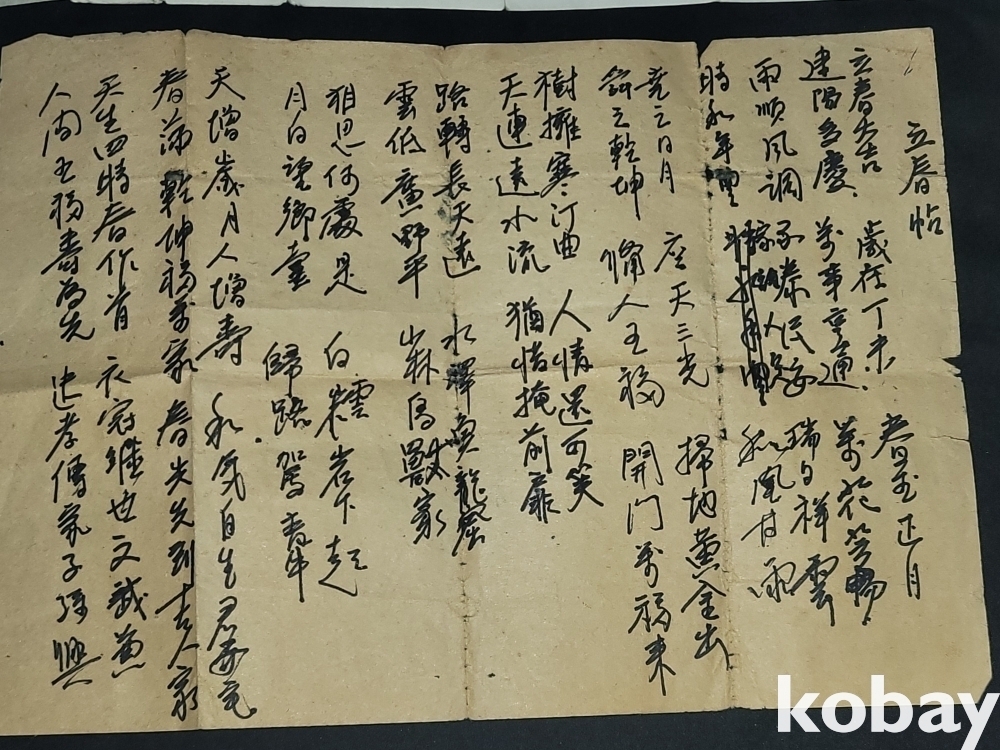 立春帖
立春大吉 歲在丁未 春至正月
建陽多慶 萬事亨通 萬花芳暢
雨順風調 民安 瑞日祥雲
時和年豊 和風甘雨
堯之日月 座天三光 掃地黃金出
舜之乾坤 備人五福 開門萬福來
樹擁寒汀曲 人情還可笑
天連遠水流 猶惜掩前扉
路轉長天遠 水澤魚龍窟
雲低廣野平 山林鳥獸家
相思何處是 白雲岩下起
月白望鄉臺 歸路駕青牛
天增歲月人增壽 和氣自生君子宅
春滿乾坤福萬家 春光先到吉人家
天生四時春作首 衣冠繼世文武兼
人間五福壽為先 忠孝傳家子孫興
kobay